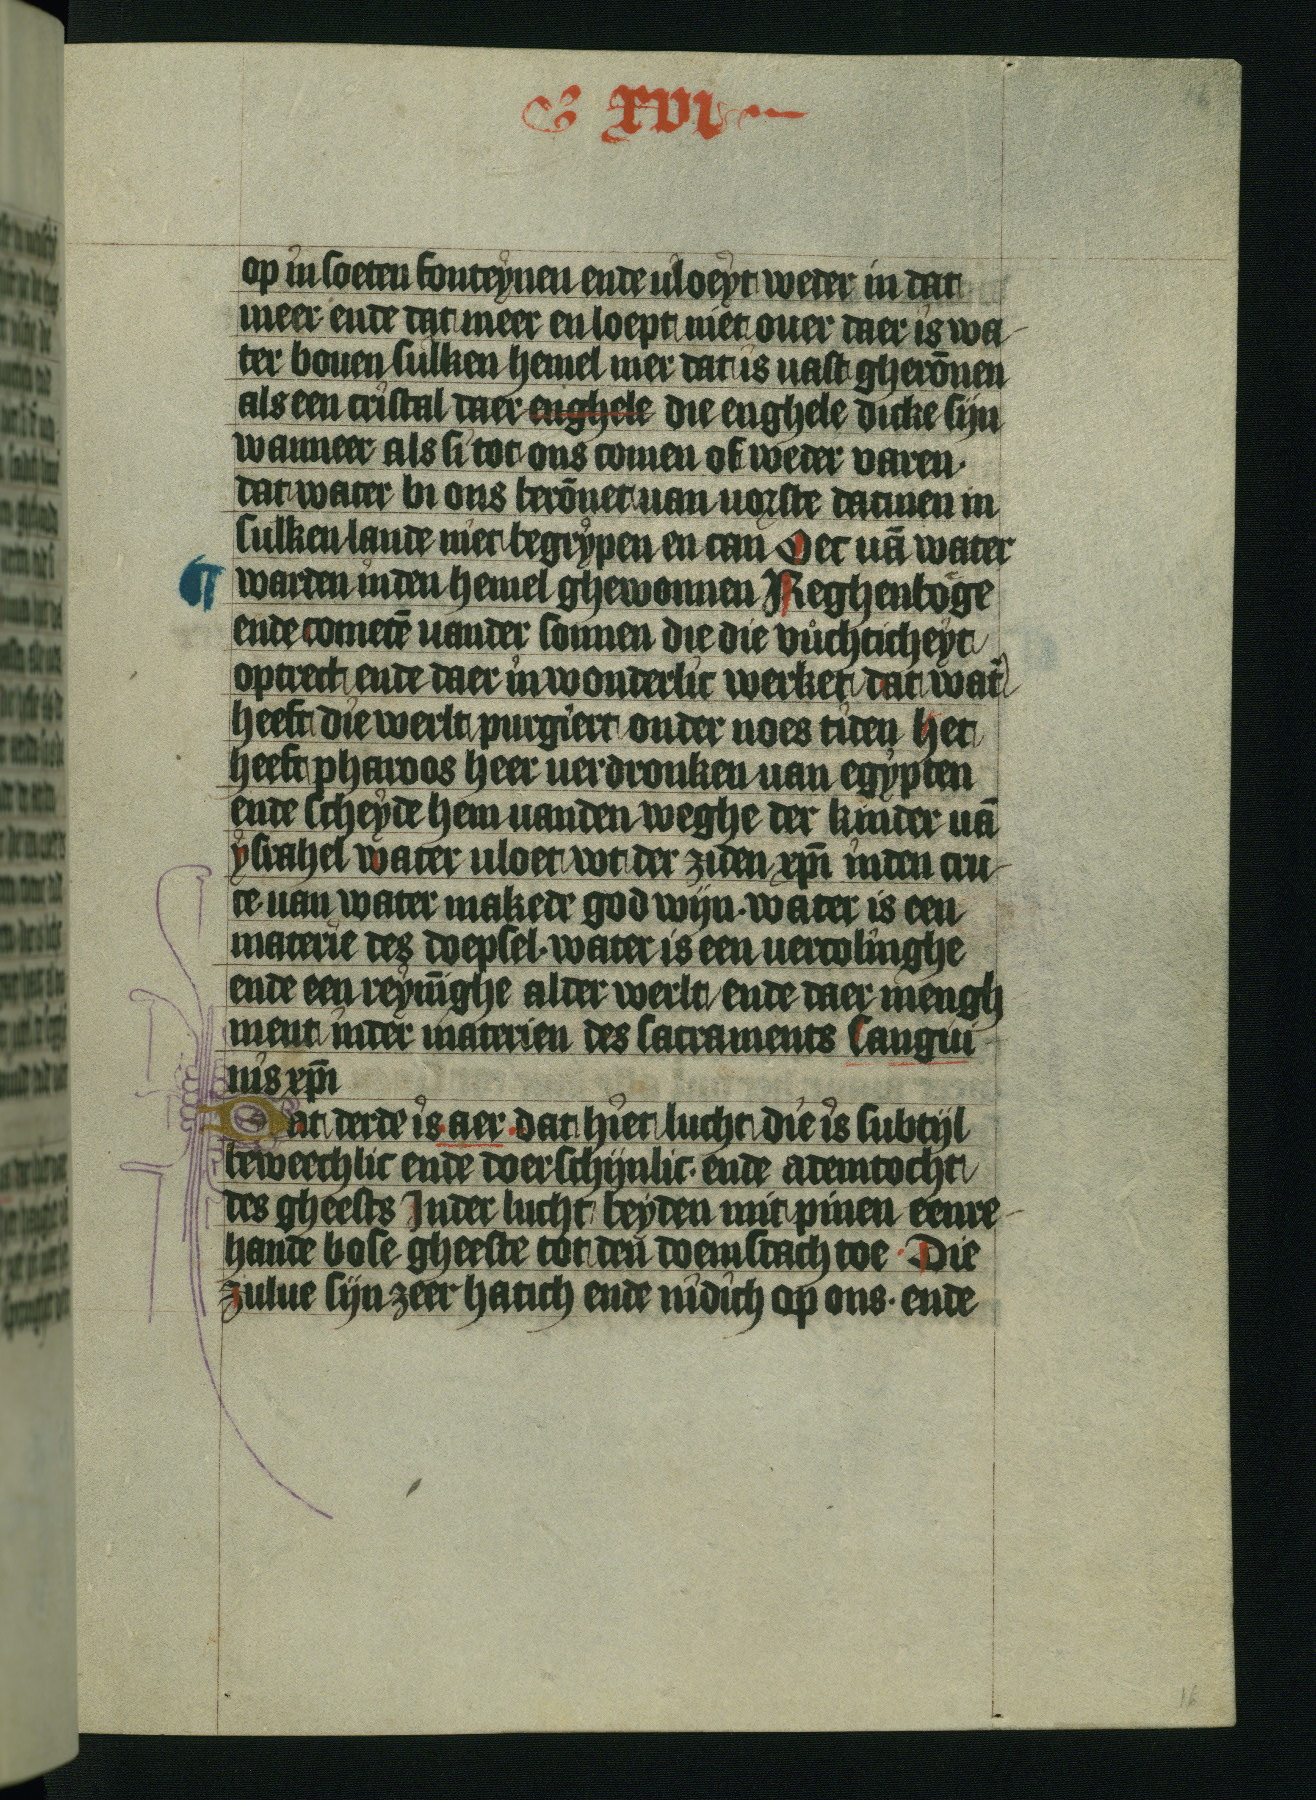 xvi
op in soeten fonteynen ende uloeyt weder in dat
meer ende dat meer en loept niet ouer daer is wa-
ter bouen sulken hemel mer dat is uast gherōnen
als een cristal daer enghele die enghele dicke sijn
wanneer als si tot ons comen of weder varen·
dat water bi ons berōnet uan uorste datmen in
sulken lande niet begrypen en can Oec uā water
¶ warden in den hemel ghewonnen Reghenboge
ende cometē uander sonnen die die vuchticheyt
optrect ende daer in wonderlic werket dat wat
heeft die werlt purgiert onder noes tiden het
heeft pharoos heer uerdronken uan egypten
ende scheyde hem uanden weghe der kinder uā
ysrahel water uloet wt der ziden xp̄i in den cru-
ce uan water makede god wijn· water is een
materie des doepsel· water is een uercolinghe
ende een reyn̄ighe alder werlt ende daer mengh
ment inder materien des sacraments Sangui
nis xp̄i
Dat derde is aer dat hiet lucht die is subtijl
beweechlic ende doerschijnlic· ende ademtocht
des gheests Inder lucht beyden mit pinen eenre-
hande bose gheeste tot den doemsdach toe· Die
zulue sijn zeer hatich ende nidich op ons· ende
16